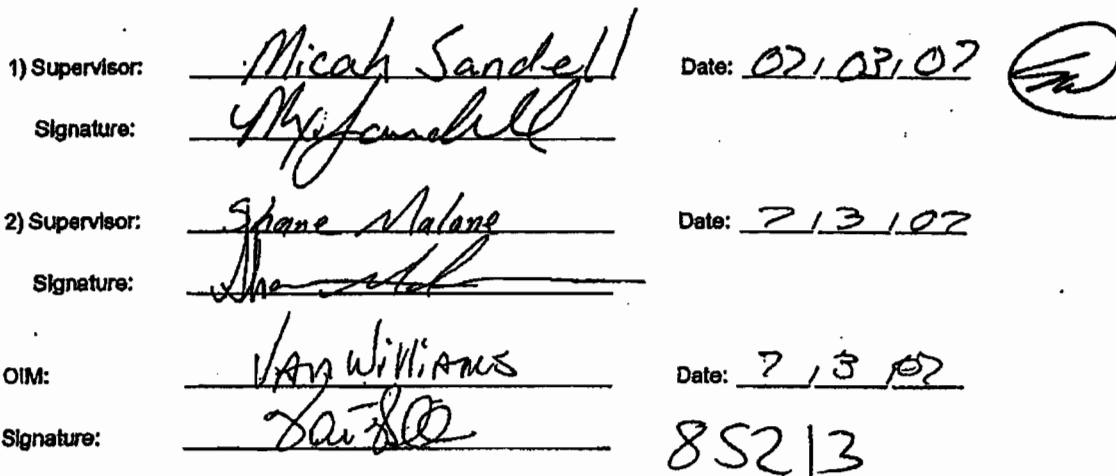 1) Supervisor: Micah Sandell Date: 07/03/07
Signature:
2) Supervisor: Shane Malone Date: 7/3/07
Signature:
OIM: Van Williams Date: 7/3/07
Signature:
85213